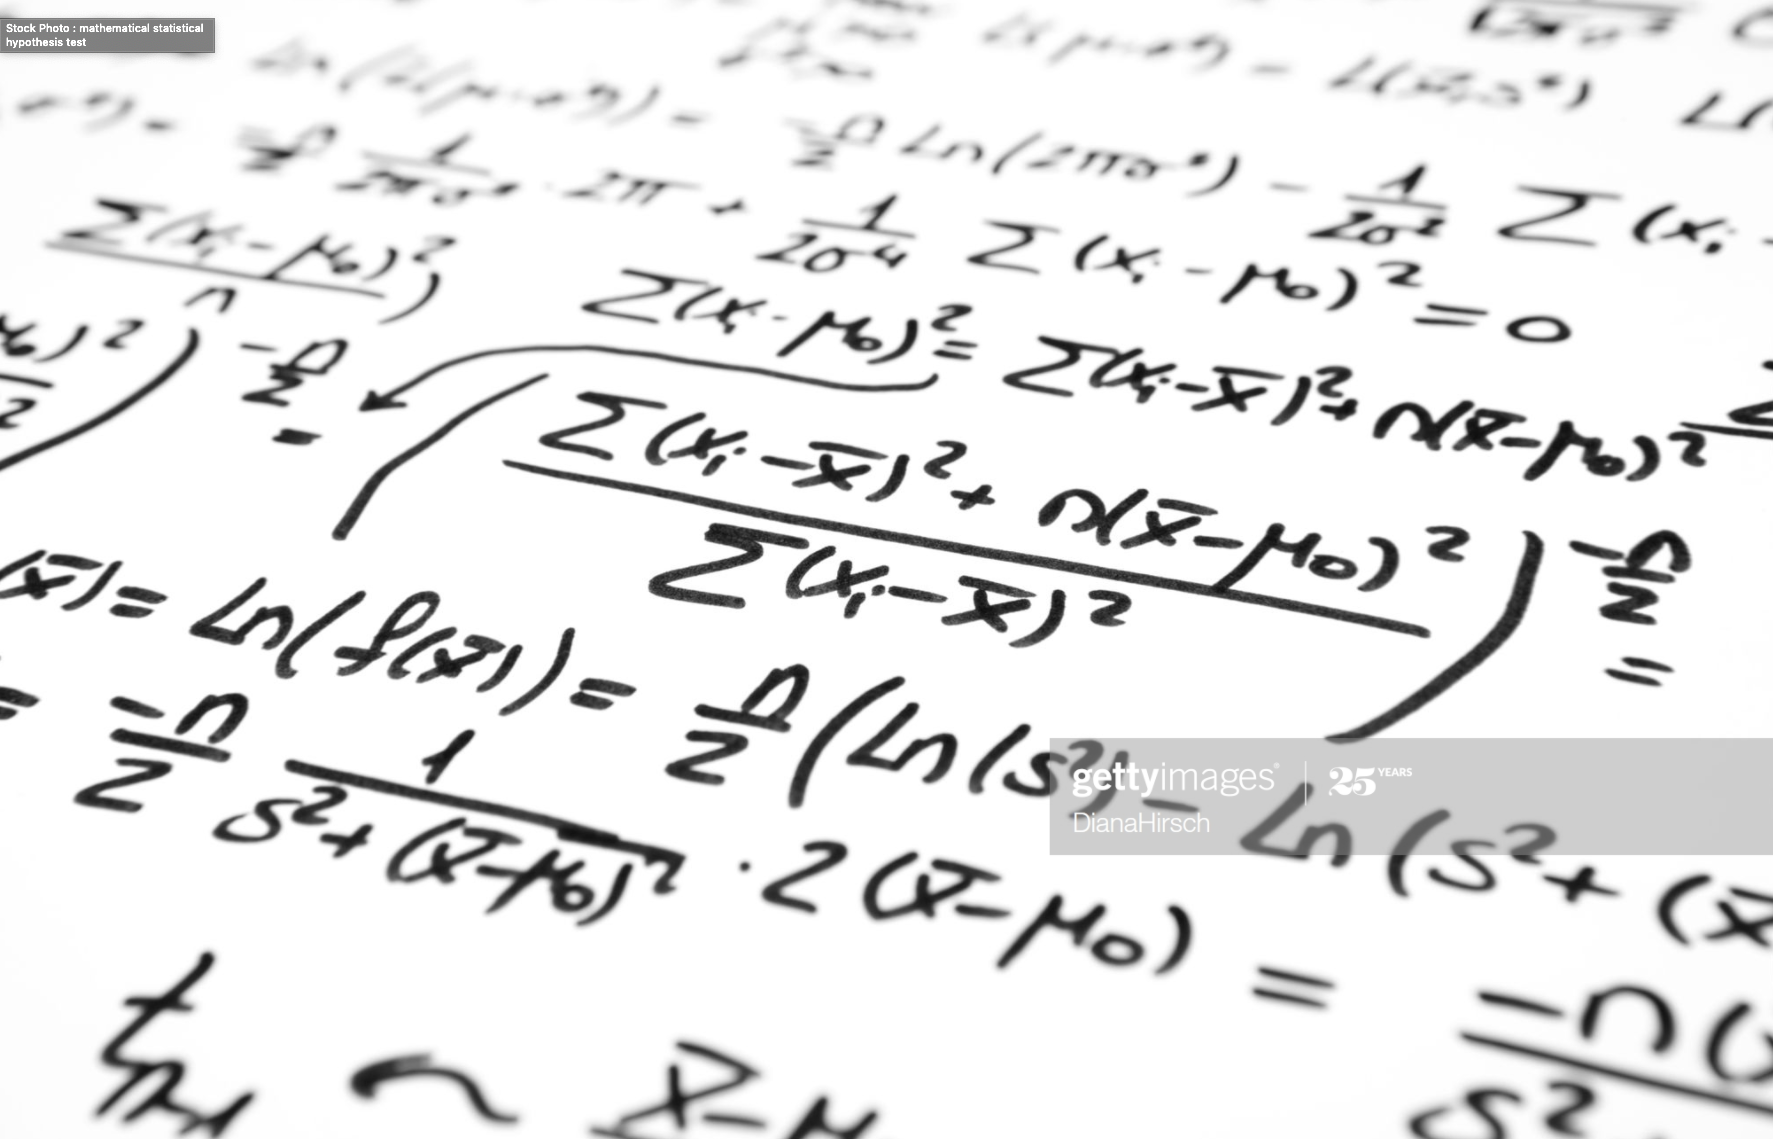 Stock Photo : mathematical statistical
hypothesis test
- L(x̄, s²) L(
= -n/2 Ln(2πσ²) - 1/2σ² Σ(xᵢ -
-n/2 1/2πσ² · 2π + 1/2σ⁴ Σ(xᵢ - μ₀)² = 0
Σ(xᵢ - μ₀)²/n)
Σ(xᵢ - μ₀)² = Σ(xᵢ - x̄)² + n(x̄ - μ₀)²
μ₀)²)^-n/2 = (Σ(xᵢ - x̄)² + n(x̄ - μ₀)² / Σ(xᵢ - x̄)²)^-n/2 =
(x̄) = Ln(f(x̄)) = n/2 (Ln(s²) - Ln(s² + (x̄
= -n/2 1/s² + (x̄ - μ₀)² · 2(x̄ - μ₀) = -n(/s²
tₙ₋₁ ~ x̄ - μ
gettyimages® 25 YEARS
DianaHirsch